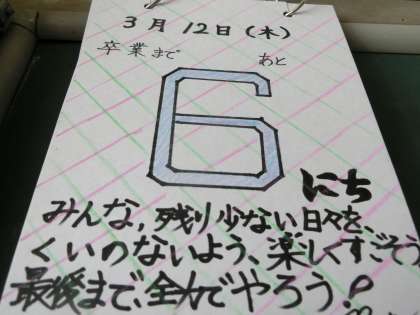 3月12日(木)
卒業まで あと
6
にち
みんな,残り少ない日々を、
くいのないよう、楽しくすごそう
最後まで、全力でやろう!